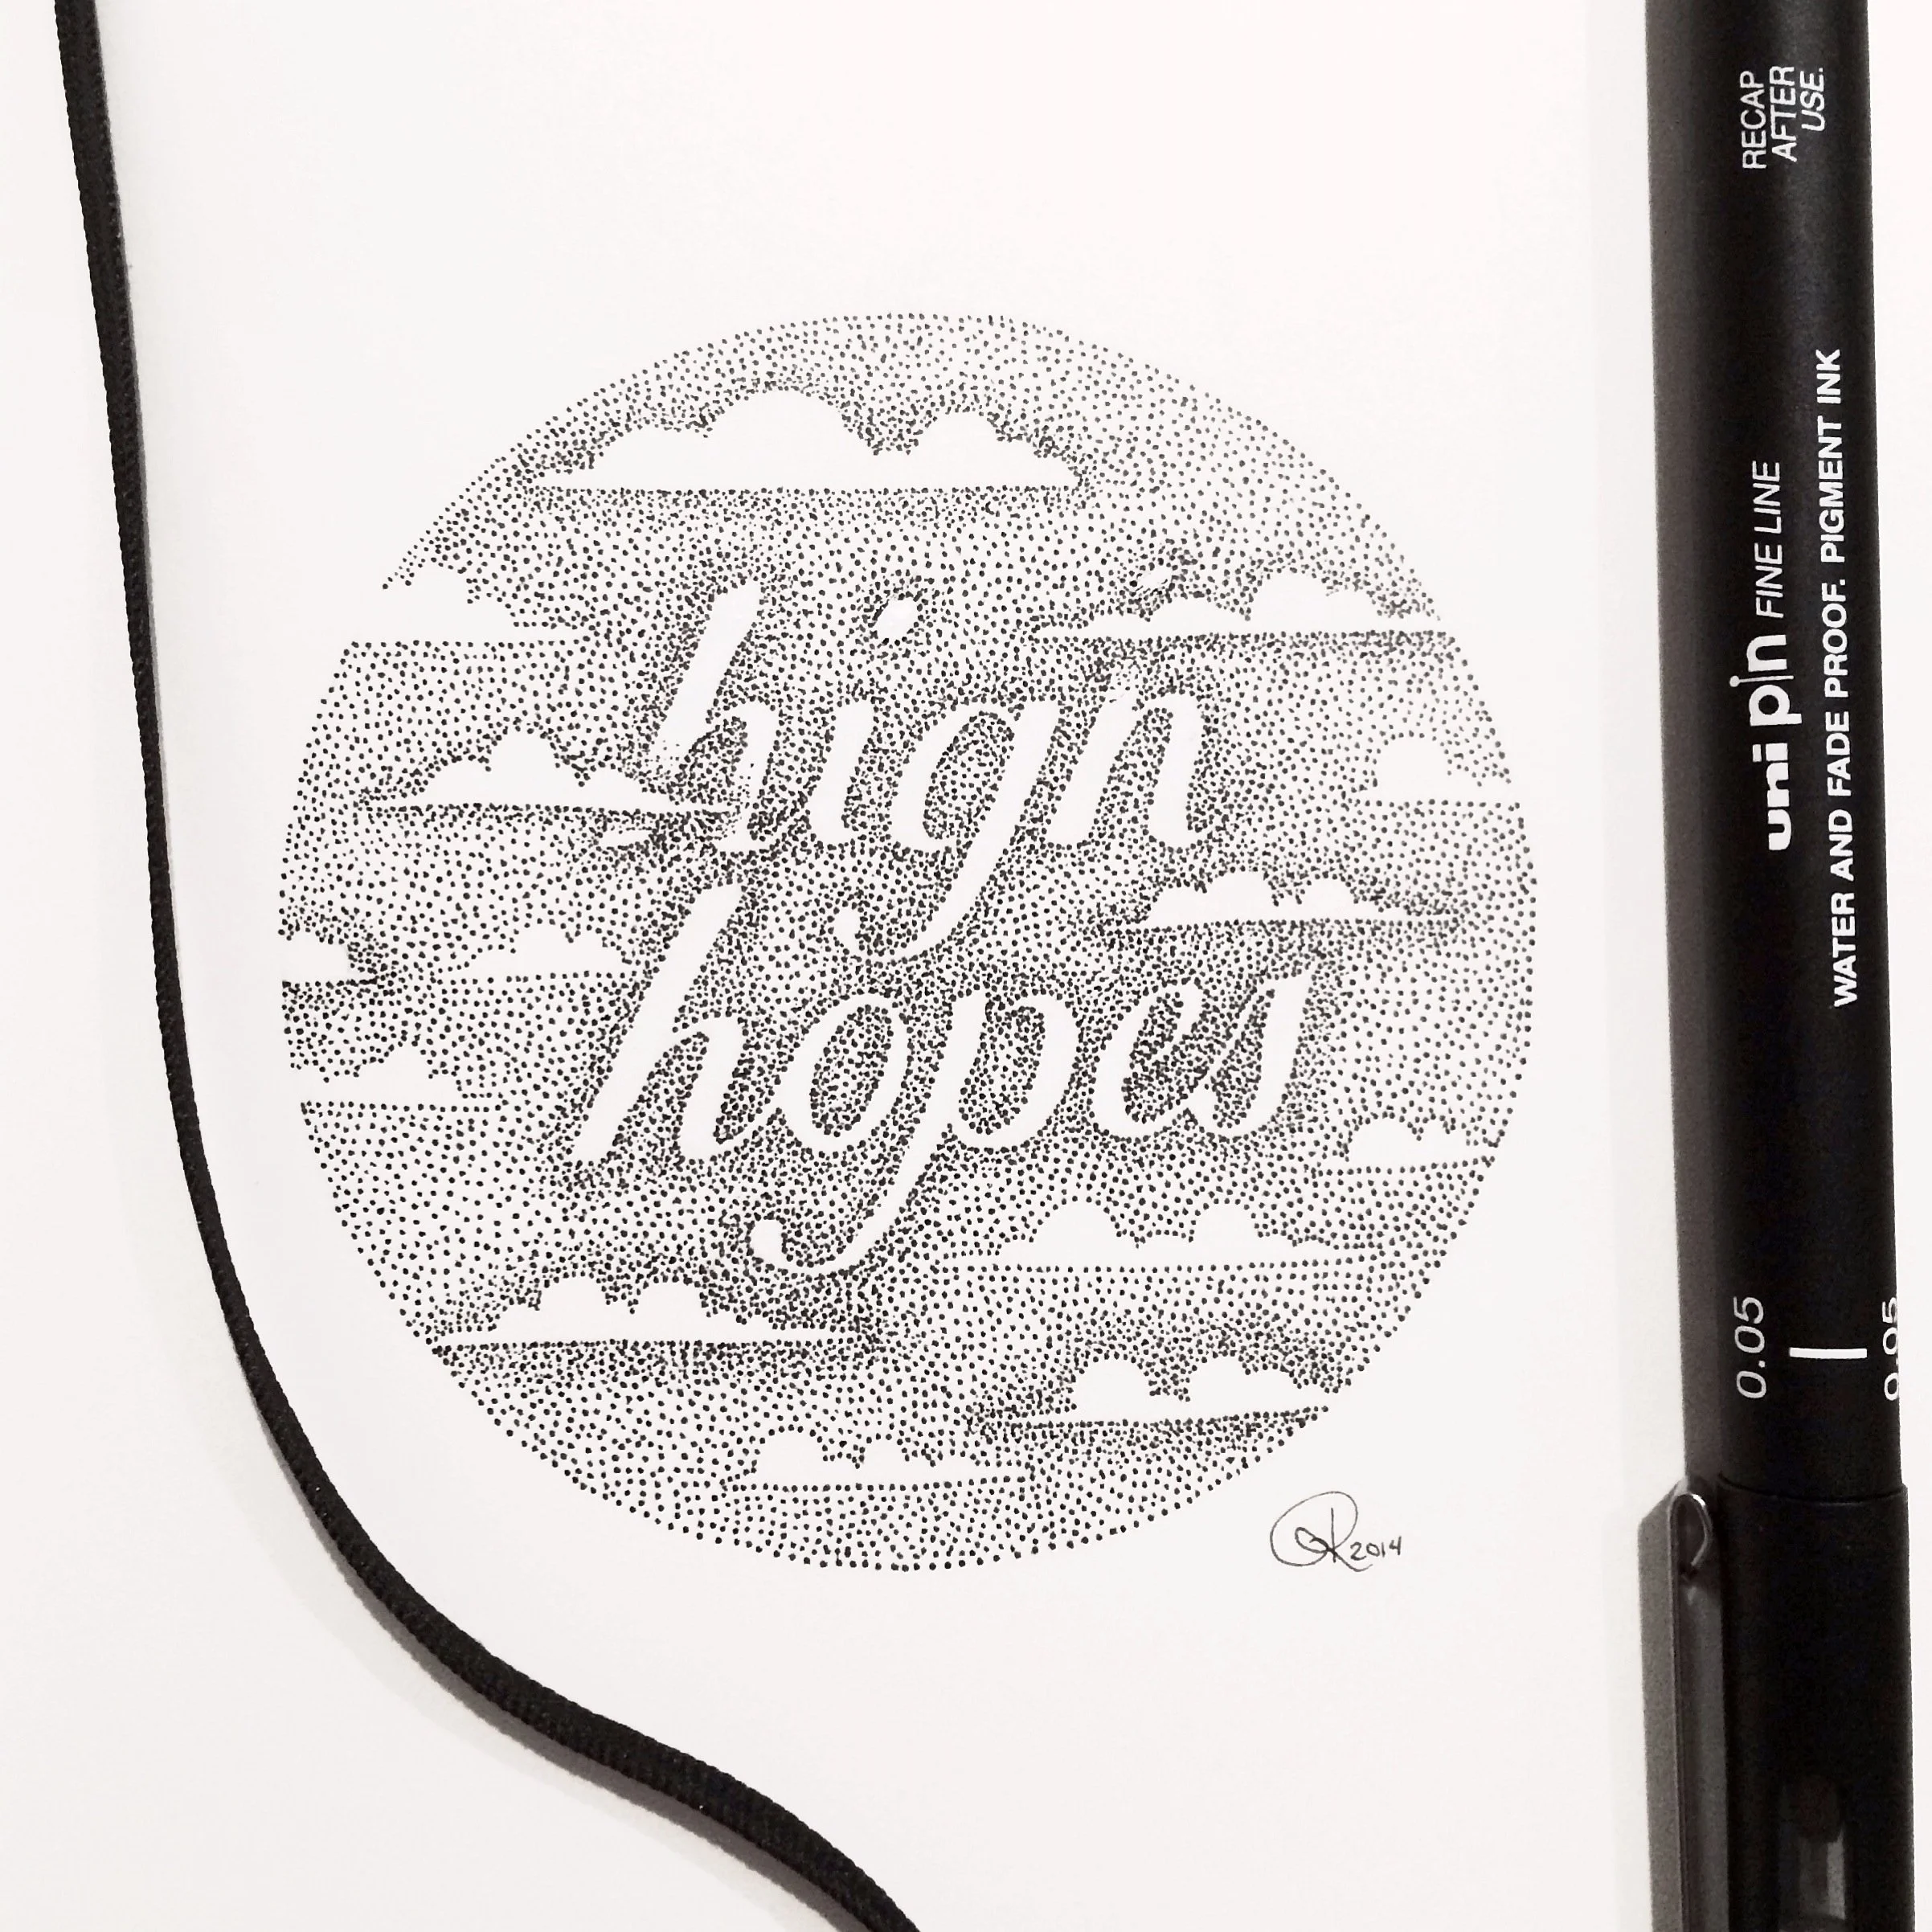 high
hopes
2014
RECAP
AFTER
USE.
uni pin FINE LINE
WATER AND FADE PROOF. PIGMENT INK
0.05
0.05